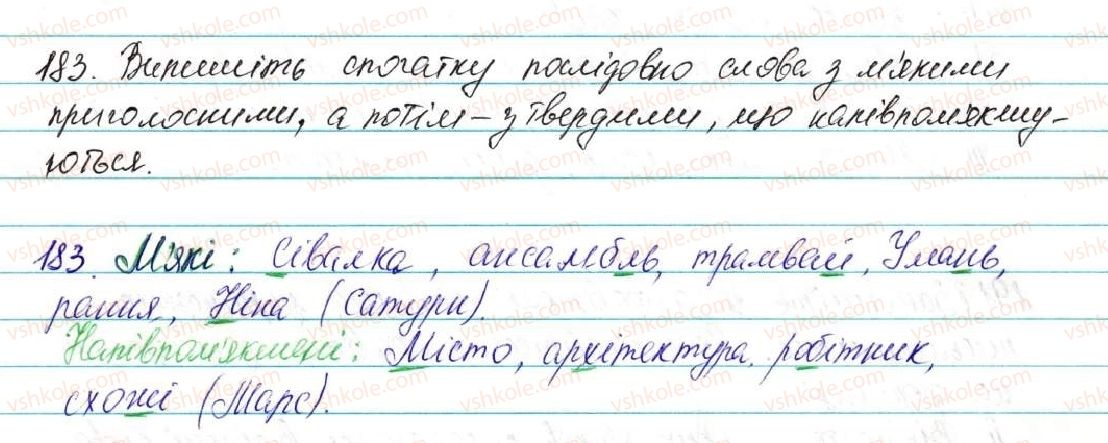 183. Випишіть спочатку послідовно слова з м'якими
приголосними, а потім – з твердими, що напівпом'якшу-
ються.
183. М'які: Сівалка, ансамбль, трамвай, Умань,
рання, Ніна (Сатурн).
Напівпом'якшені: Місто, архітектура. робітник,
схожі (Марс).